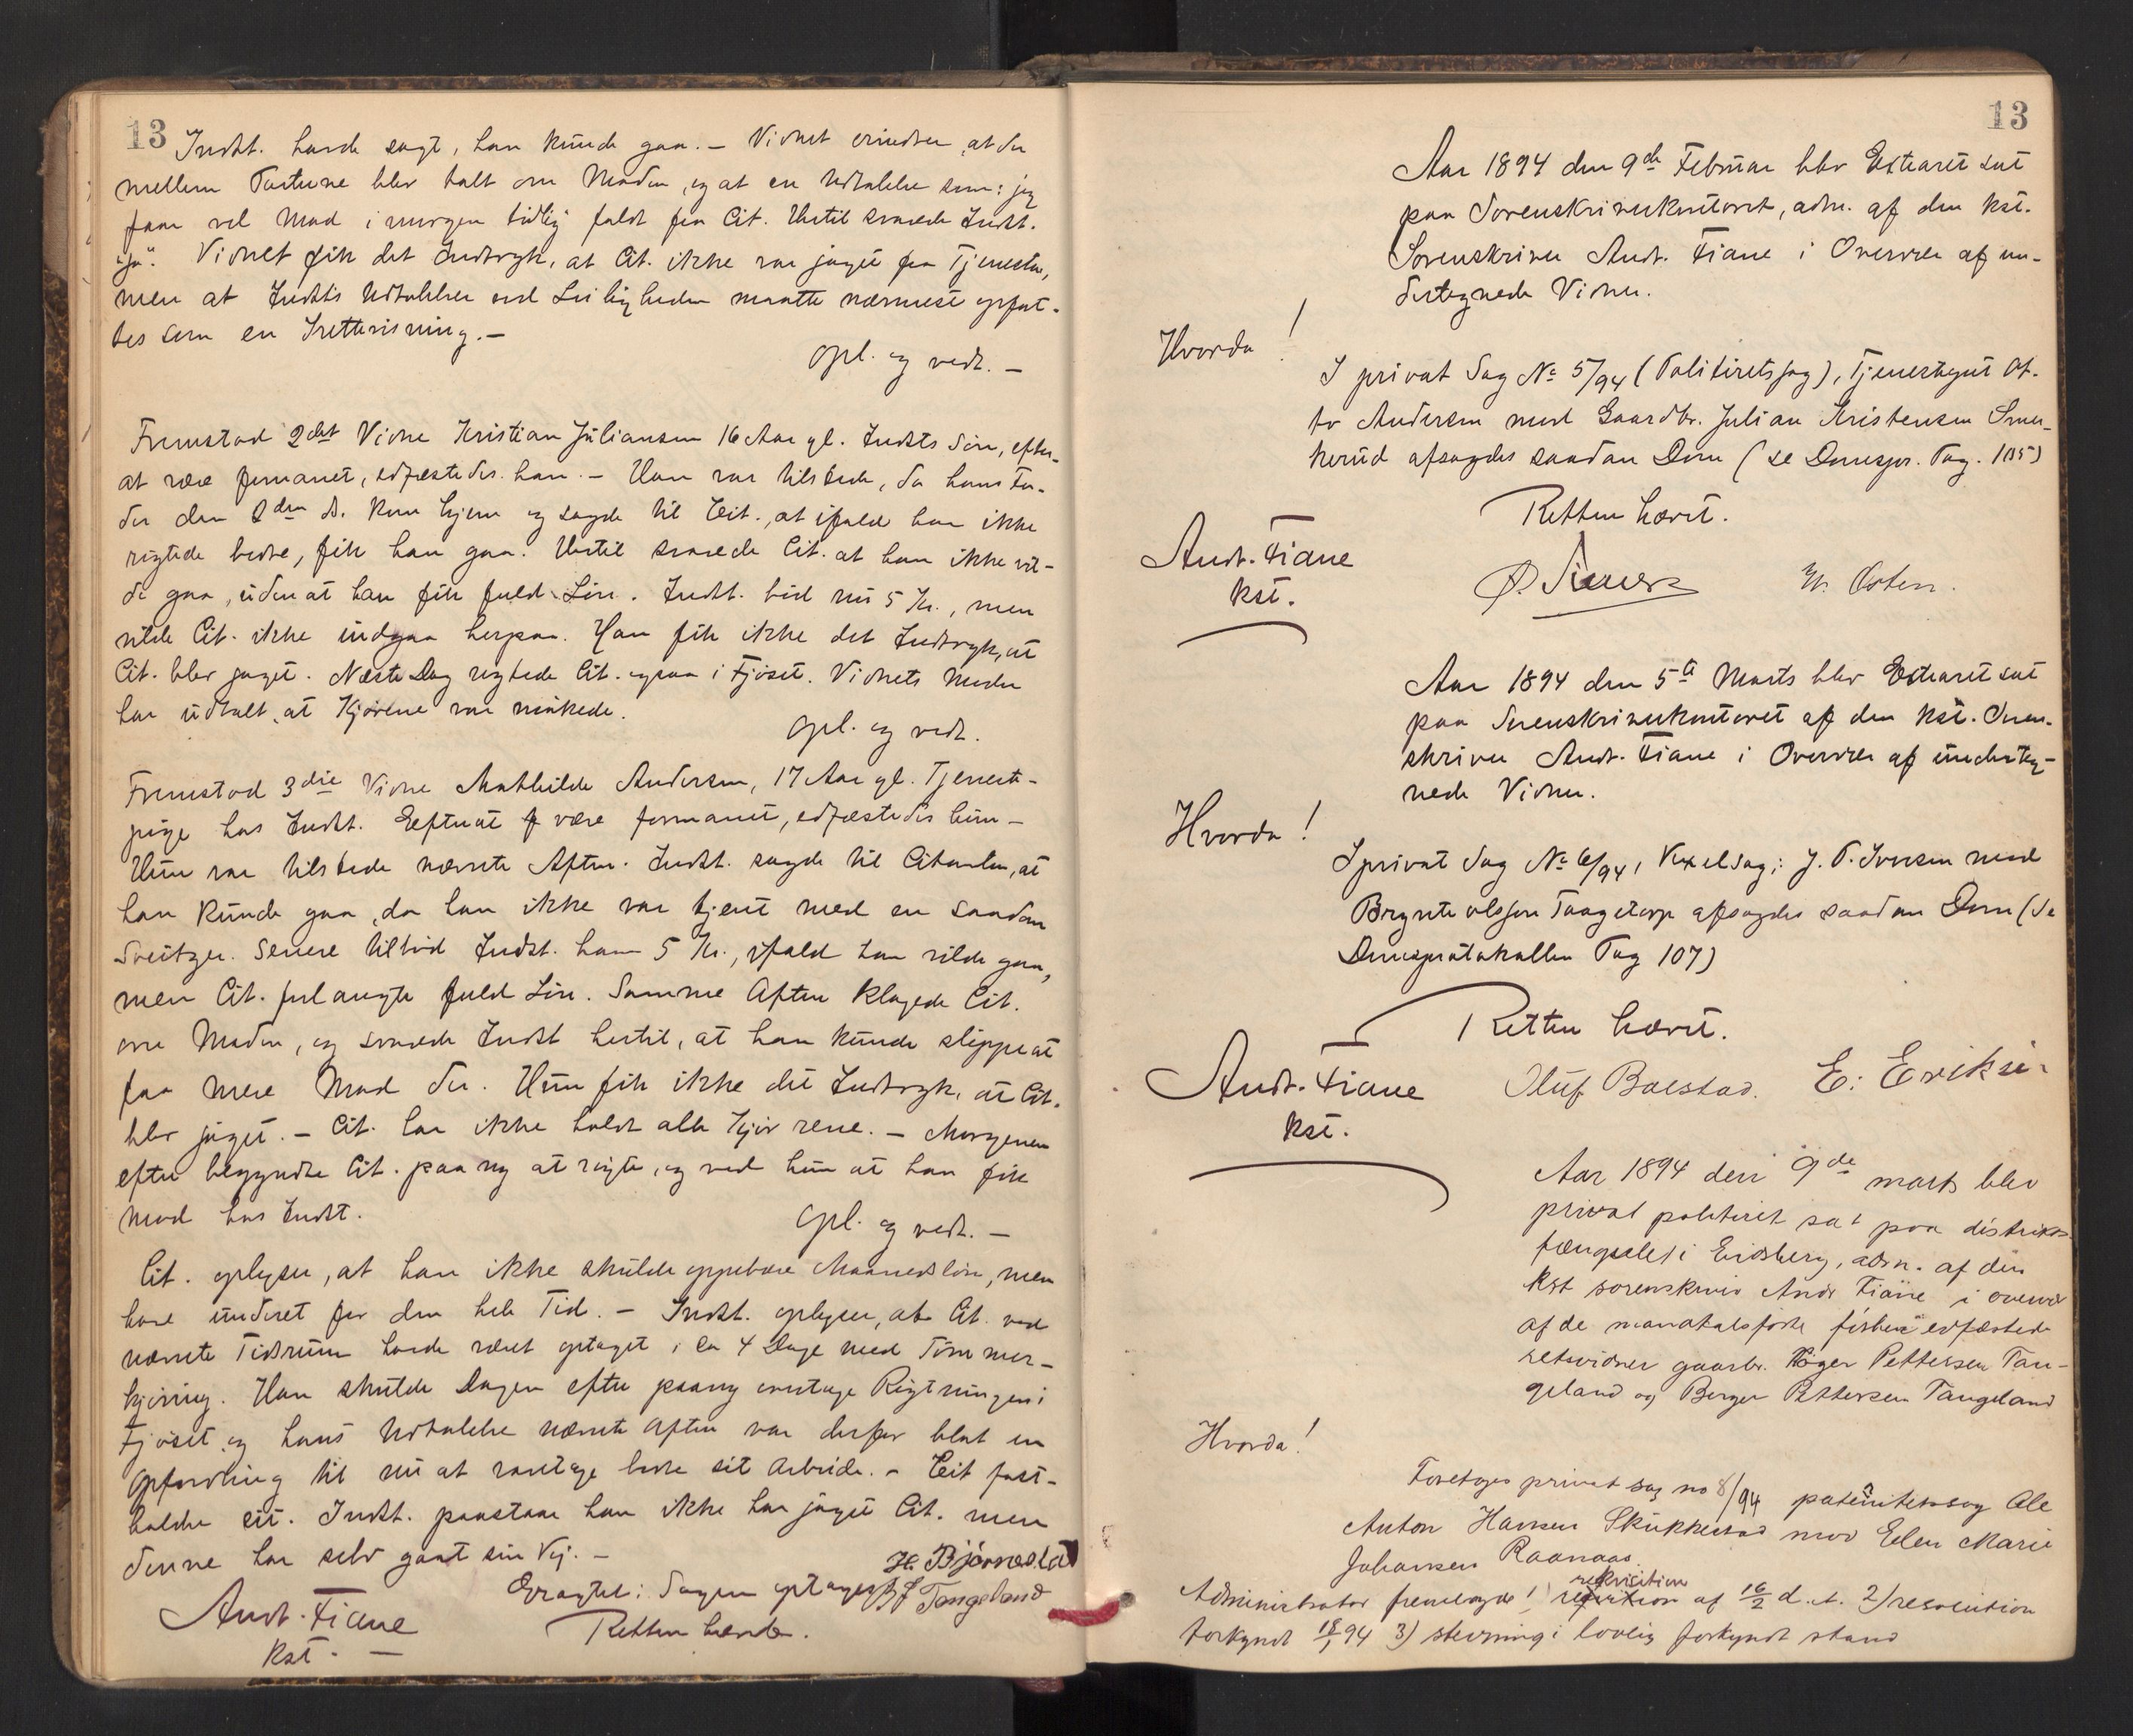 13
Indst. havde sagt, han kunde gaa. – Vidnet erindrer, at der
mellem Parterne blev talt om Maden, og at en Udtalelse som: jeg
faar vel Mad i morgen tidlig faldt fra Cit. Hertil svarede Indst.
"ja". Vidnet fik det Indtryk, at Cit. ikke var jaget fra Tjenesten,
men at Indsts Udtalelser ved Leiligheden maatte nærmest opfat-
tes som en Irettevisning. –
Opl. og vedt. –
Fremstod 2det Vidne Kristian Juliansen 16 Aar gl. Indsts Søn, efter
at være formanet, edfæstedes han. – Han var tilstede, da hans Fa-
der den 8den ds. kom hjem og sagde til Cit., at ifald han ikke
rigtede bedre, fik han gaa. Hertil svarede Cit. at han ikke vil-
de gaa, uden at han fik fuld Løn. Indst. bød nu 5 Kr., men
vilde Cit. ikke indgaa herpaa. Han fik ikke det Indtryk, at
Cit. blev jaget. Næste Dag rigtede Cit. ogsaa i Fjøset. Vidnets Moder
har udtalt, at Kjørene var møkede.
Opl. og vedt.
Fremstod 3die Vidne Mathilde Andersen, 17 Aar gl. Tjeneste-
pige hos Indst. Efterat være formanet, edfæstedes hun –
Hun var tilstede nævnte Aften. Indst. sagde til Citanten, at
han kunde gaa, da han ikke var tjent med en saadan
Sveitzer. Senere tilbød Indst. ham 5 Kr., ifald han vilde gaa,
men Cit. forlangte fuld Løn. Samme Aften klagede Cit.
over Maden, og svarede Indst hertil, at han kunde slippe at
faa mere Mad der. Hun fik ikke det Indtryk, at Cit.
blev jaget. – Cit. har ikke holdt alle Kjør rene. – Morgenen
efter begyndte Cit. paa ny at rigte, og ved hun at han fik
Mad hos Indst.
Opl. og vedt. –
Cit. oplyser, at han ikke skulde oppebære Maanedsløn, men
have under et for den hele Tid. – Indst. oplyser, at Cit. ved
nævnte Tidsrum havde været optaget i ca 4 Dage med Tømmer-
kjøring. Han skulde Dagen efter paany overtage Rigtningen i
Fjøset og hans Udtalelse nævnte Aften var derfor blot en
Opfordring til nu at varetage bedre sit Arbeide. – Cit fast-
holder sit. Indst. paastaar han ikke har jaget Cit. men
denne har selv gaat sin Vej. –
H. Bjørnestad
Eragtet: Sagen optages
Tangeland
Andr. Fiane
Retten hævet.
kst. –
13
Aar 1894 den 9de Februar blev Extraret sat
paa Sorenskriverkontoret, adm. af den kst.
Sorenskriver Andr. Fiane i Overvær af un-
dertegnede Vidner.
Hvorda!
I privat Sag No 5/94 (Politiretssag), Tjenestegut Ot-
to Andersen mod Gaardbr. Julian Kristensen
afsagdes saadan Dom (se Domspr. Pag. 105)
Retten hævet.
Andr. Fiane
kst.
Osten.
Aar 1894 den 5te Marts blev Extraret sat
paa Sorenskriverkontoret af den kst. Soren-
skriver Andr. Fiane i Overvær af underteg-
nede Vidner.
Hvorda!
I privat Sag No 6/94, Vexelsag: J. P. Iversen mod
afsagdes saadan Dom (Se
Domsprotokollen Pag 107)
Retten hævet.
Andr. Fiane
kst.
Oluf Bolstad. E. Eriksen
Aar 1894 den 9de marts blev
privat politiret sat paa distrikts-
fængselet i Eidsberg, adm. af den
kst sorenskriver Andr Fiane i overvær
af de mandtalsførte forhen edfæstede
retsvidner gaardbr. Roger Pettersen Tan-
geland og Berger Pettersen Tangeland
Hvorda!
Foretoges privat sag no 8/94 paternitetssag Ole
Anton Hansen Skukkestad mod Elen Marie
Johansen Raanaas.
Administrator fremlagde 1) rekvisition af 16/2 d. A. 2) resolution
forkyndt 18/1 94 3) stevning i lovlig forkyndt stand